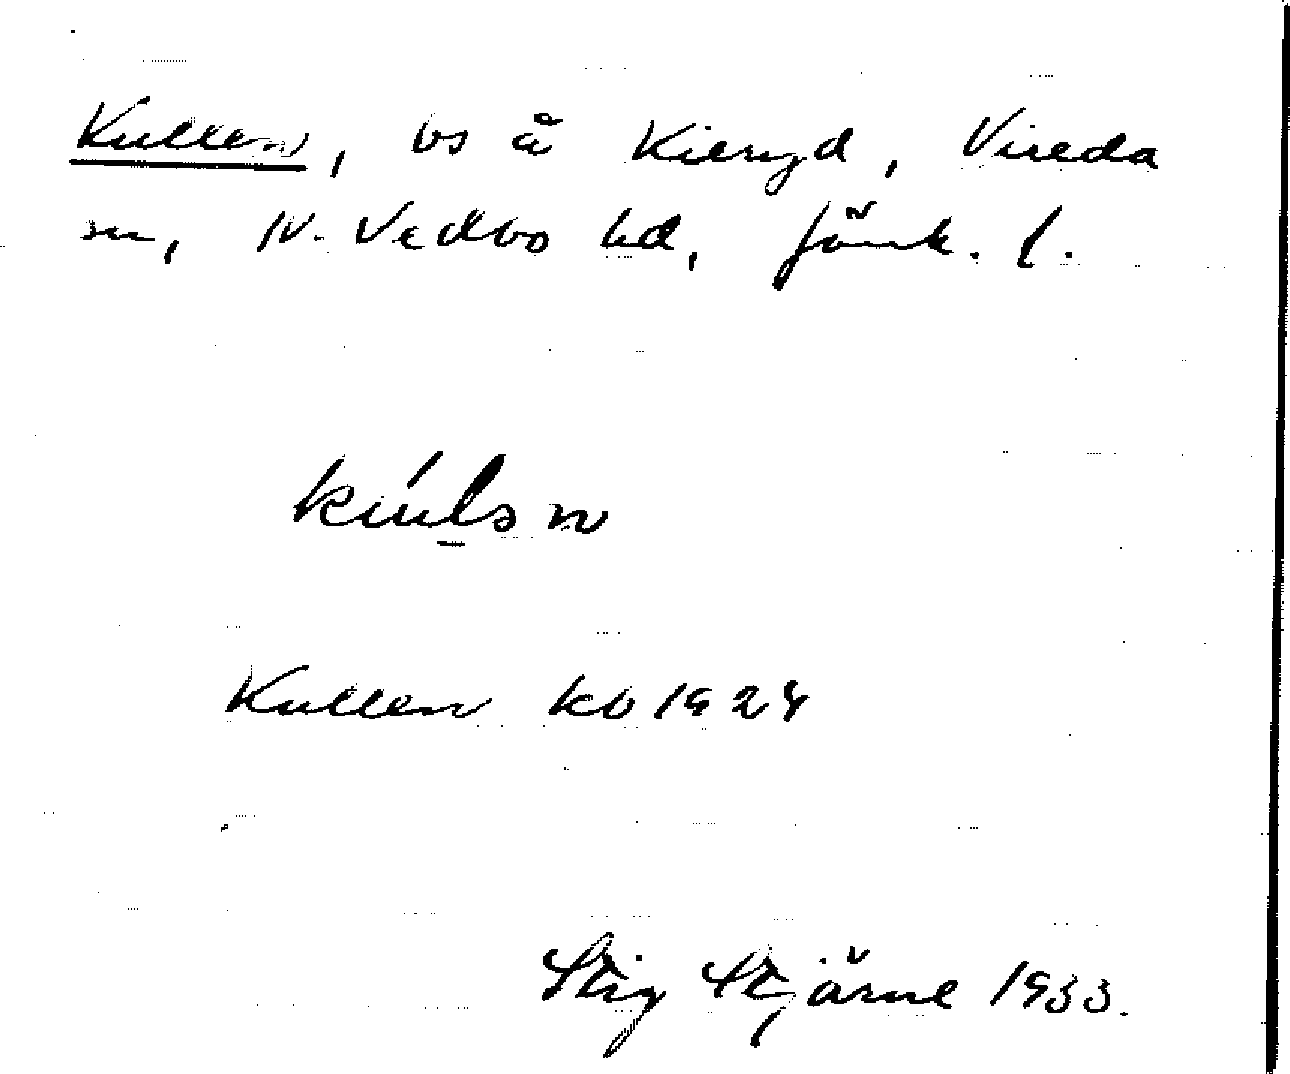 Kullen, bs å Kieryd, Vireda
sn, N. Vedbo hd, Jönk. l.
kúl̠ən
Kullen kb 1924
Stig Stjärne 1933.